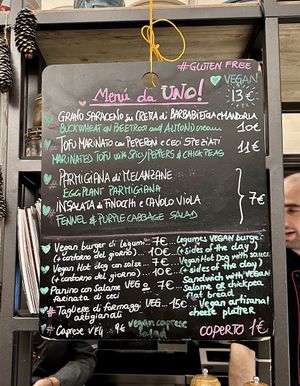 #GLUTEN FREE
VEGAN
Menù da UNO!
13€
GRANO SARACENO su CRETA di BARBABIETOLA e MANDORLA
BUCKWHEAT ON BEETROOT and ALMOND cream
10€
TOFU MARINATO con PEPERONI e CECI SPEZIATI
MARINATED TOFU with SPICY PEPPERS & CHICK PEAS
11€
PARMIGIANA di MELANZANE
EGGPLANT PARMIGIANA
INSALATA di FINOCCHI e CAVOLO VIOLA
FENNEL & PURPLE CABBAGE SALAD
7€
Vegan burger di legumi... 7€... Legumes VEGAN burger
(+contorno del giorno) .. 10€.. (+sides of the day)
Vegan Hot dog con salsa.. 7€.. Vegan Hot Dog with sauce
(+contorno del giorno) .. 10€.. (+sides of the day)
Panino con Salame VEG o 7€ Sandwich with VEGAN
farinata di ceci SALAME or chickpea
flat bread
*Tagliere di formaggi VEG... 15€ Vegan artisanal
artigianali cheese platter
Caprese VEG .. 9€ vegan caprese
salad
COPERTO 1€